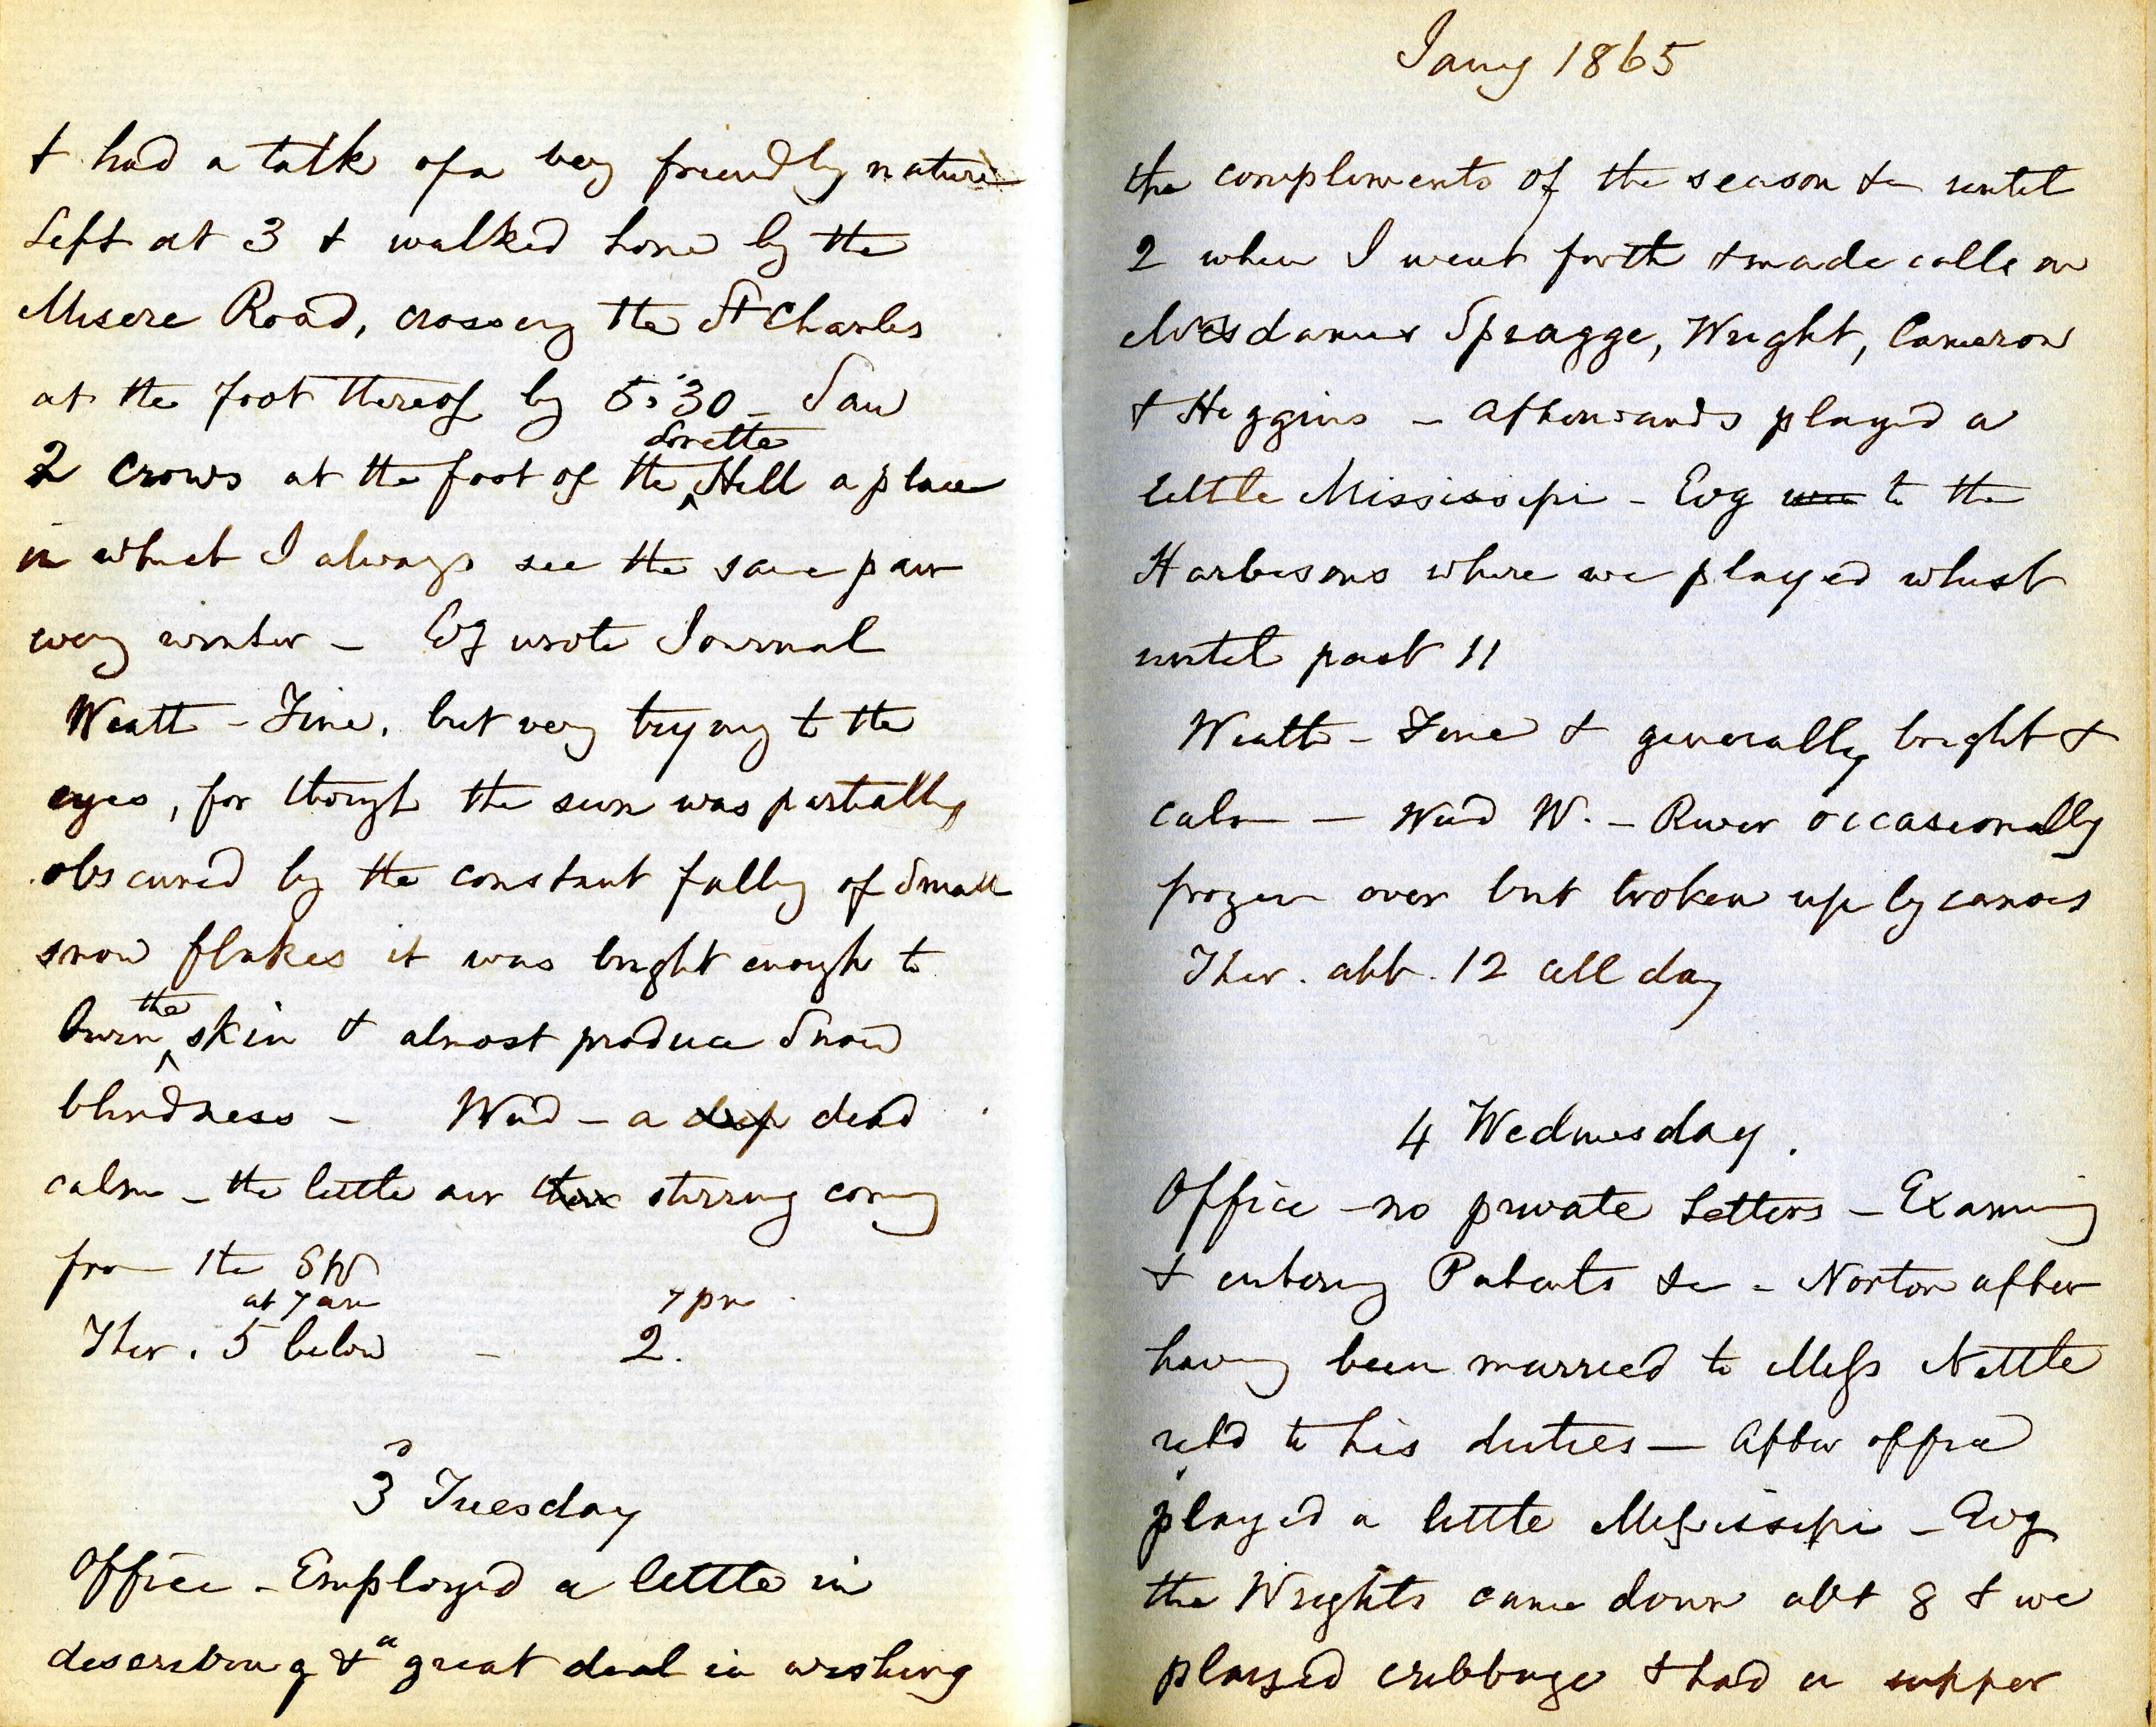 & had a talk of a very friendly nature
Left at 3 & walked home by the
Misere Road, crossing the St Charles
at the foot thereof by 5.30 _ Saw
Lorette
2 crows at the foot of the ^ Hill a place
in which I always see the same pair
every winter _ Evg wrote Journal
Weath - Fine, but very trying to the
eyes, for though the sun was partially
obscured by the constant falling of small
snow flakes it was bright enough to
the
burn ^ skin & almost produce Snow
blindness _ Wind - a deep dead
calm - the little air stirring coming
from the SW
at 7 am 7 pm
Ther. 5 below - 2.
3d Tuesday
Office - Employed a little in
describing & a great deal in wishing
Jany 1865
the compliments of the season &c until
2 when I went forth & made calls on
Mesdames Spragge, Wright, Cameron
& Higgins - Afterwards played a
little Mississipi - Evg to the
Harbesons where we played whist
until past 11
Weath - Fine & generally bright &
calm - Wind W. - River occasionally
frozen over but broken up by canoes
Ther. abt. 12 all day
4 Wednesday.
Office - no private Letters - Examing
& entering Patents &c - Norton after
having been married to Miss Nettle
retd to his duties - After office
played a little Missisipi - Evg
the Wrights came down abt 8 & we
played cribbage & had a supper